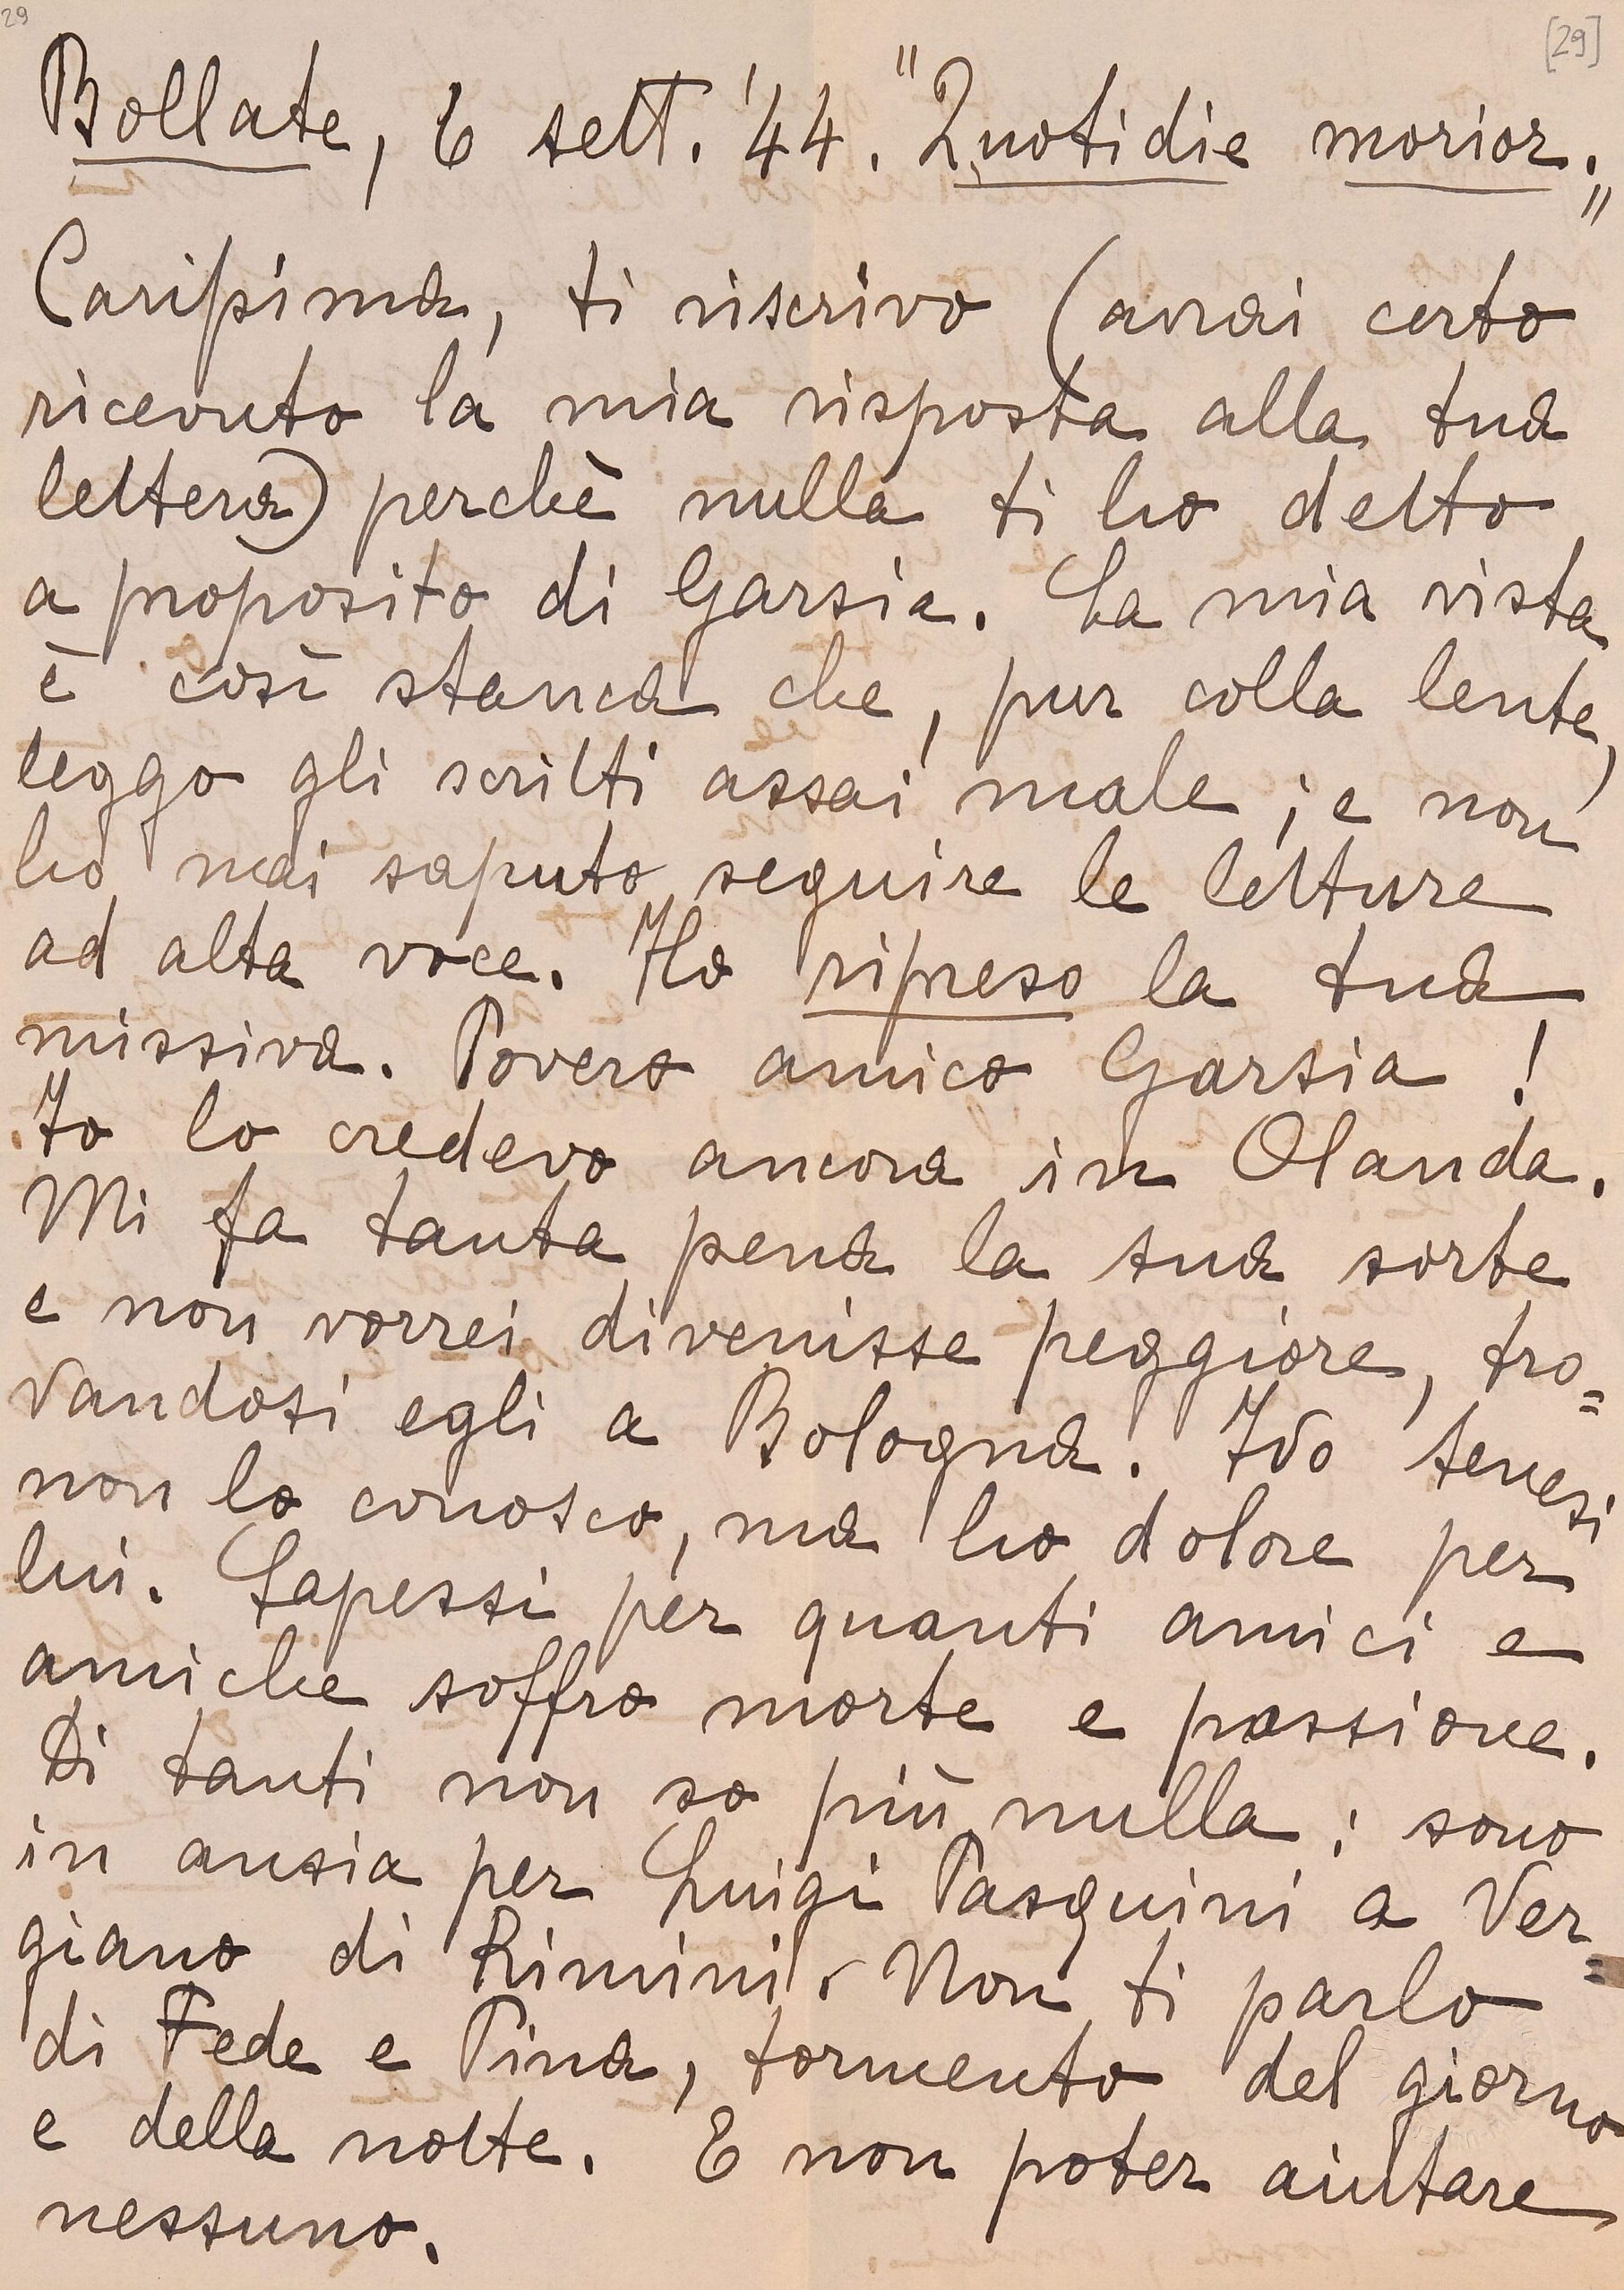 29 [29]
Bollate, 6 sett. '44. "Quotidie morior."
Carissima, ti riscrivo (avrai certo
ricevuto la mia risposta alla tua
lettera) perchè nulla ti ho detto
a proposito di Garsia. La mia vista
è così stanca che, pur colla lente,
leggo gli scritti assai male; e non
ho mai saputo seguire le letture
ad alta voce. Ho ripreso la tua
missiva. Povero amico Garsia!
Io lo credevo ancora in Olanda.
Mi fa tanta pena la sua sorte
e non vorrei divenisse peggiore, tro=
vandosi egli a Bologna. Ivo Senesi
non lo conosco, ma ho dolore per
lui. Sapessi per quanti amici e
amiche soffro morte e passione.
Di tanti non so più nulla: sono
in ansia per Luigi Pasquini a Ver=
giano di Rimini. Non ti parlo
di Fede e Pina, tormento del giorno
e della notte. E non poter aiutare
nessuno.